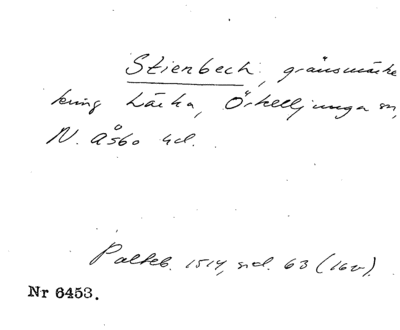 Stienbech, gränsmärke
kring Lärka, Örkelljunga sn,
N. Åsbo hd.
Palteb. 1514, sid. 63 (16v).
Nr 6453.